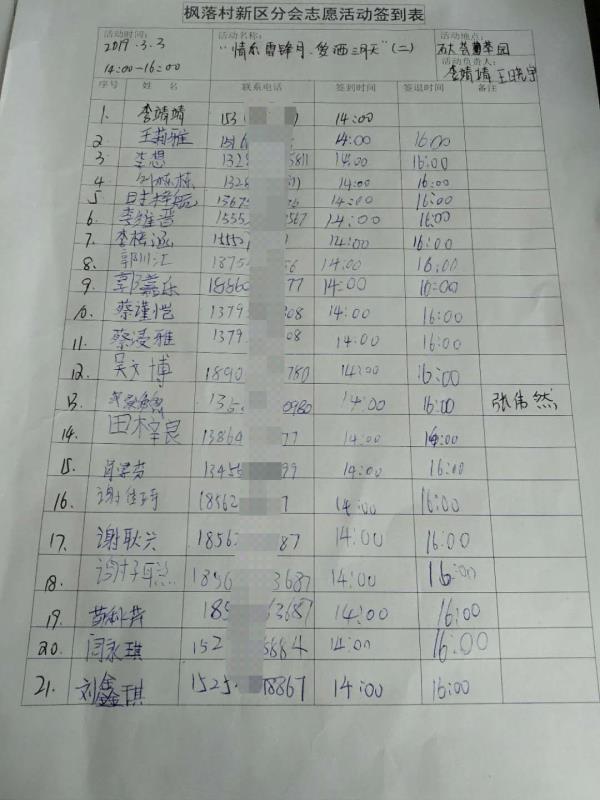 枫落村新区分会志愿活动签到表
活动时间: 2019.3.3 14:00-16:00
活动名称: "情系雷锋月·爱洒三月天"(二)
活动地点: 石大 葡萄 园
活动负责人: 李靖靖 王晓宁
序号 姓名 联系电话 签到时间 签退时间 备注
1. 李靖靖 153 7 14:00
2 王莉雅 14:00 16:00
3 李想 132 5811 14:00 16:00
4 1328 14:00 16:00
5 1367 6 14:00 16:00
6. 李维晋 1555 567 14:00 16:00
7. 李梓涵 1555 1 14:00 16:00
8. 郭川汇 1875 56 14:00 16:00
9. 郭嘉乐 18860 77 14:00 16:00
10. 蔡谨恺 1379 308 14:00 16:00
11. 蔡浸雅 1379 08 14:00 16:00
12. 吴文博 1890 780 14:00 16:00
13. 135 0980 14:00 16:00 张伟然
14. 田梓良 13864 77 14:00 16:00
15. 肖学芬 1345 99 14:00 16:00
16. 谢佳琦 18562 7 14:00 16:00
17. 谢耿兴 1856 87 14:00 16:00
18. 1856 3687 14:00 16:00
19. 185 63687 14:00 16:00
20. 闫永琪 152 5884 14:00 16:00
21. 刘鑫琪 1525 18867 14:00 16:00